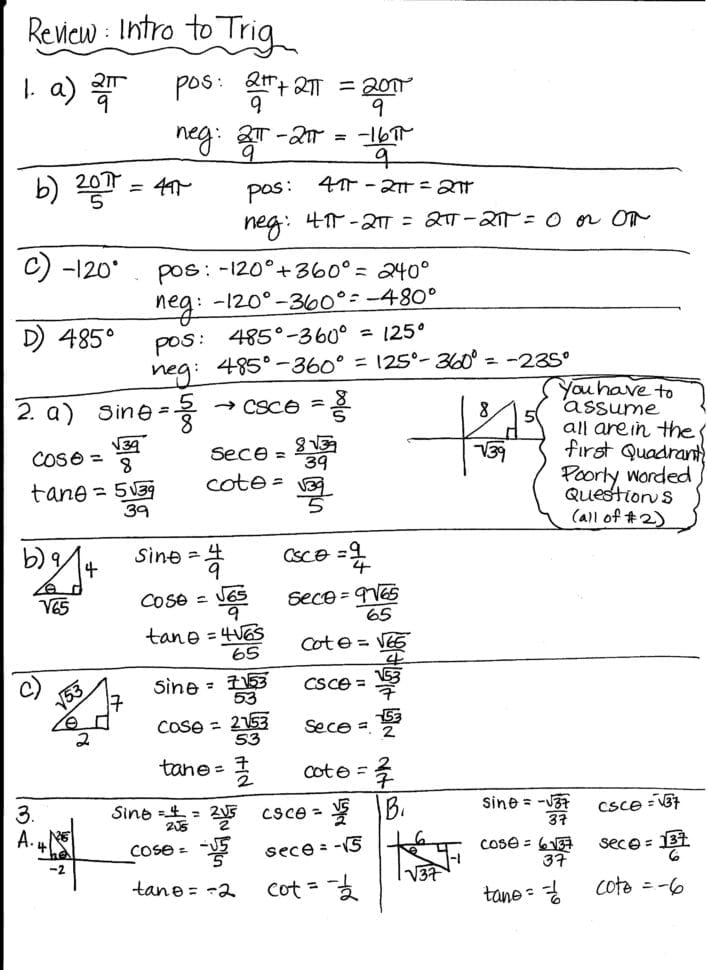 Review: Intro to Trig
1. a) 2π/9 pos: 2π/9 + 2π = 20π/9
neg: 2π/9 - 2π = -16π/9
b) 20π/5 = 4π pos: 4π - 2π = 2π
neg: 4π - 2π = 2π - 2π = 0 or 0π
C) -120° pos: -120° + 360° = 240°
neg: -120° - 360° = -480°
D) 485° pos: 485° - 360° = 125°
neg: 485° - 360° = 125° - 360° = -235°
2. a) sinθ = 5/8 → cscθ = 8/5
cosθ = √39/8 secθ = 8√39/39
tanθ = 5√39/39 cotθ = √39/5
8 5 √39
You have to
assume
all are in the
first Quadrant
Poorly worded
Questions
(all of #2)
b) 9 4 θ √65 sinθ = 4/9 cscθ = 9/4
cosθ = √65/9 secθ = 9√65/65
tanθ = 4√65/65 cotθ = √65/4
c) √53 7 θ 2 sinθ = 7√53/53 cscθ = √53/7
cosθ = 2√53/53 secθ = √53/2
tanθ = 7/2 cotθ = 2/7
3.
A. 4 -2 sinθ = 4/2√5 = 2√5/2 cscθ = √5/2
cosθ = -√5/5 secθ = -√5
tanθ = -2 cot = -1/2
B. 6 -1 √37 sinθ = -√37/37 cscθ = √37
cosθ = 6√37/37 secθ = √37/6
tanθ = -1/6 cotθ = -6